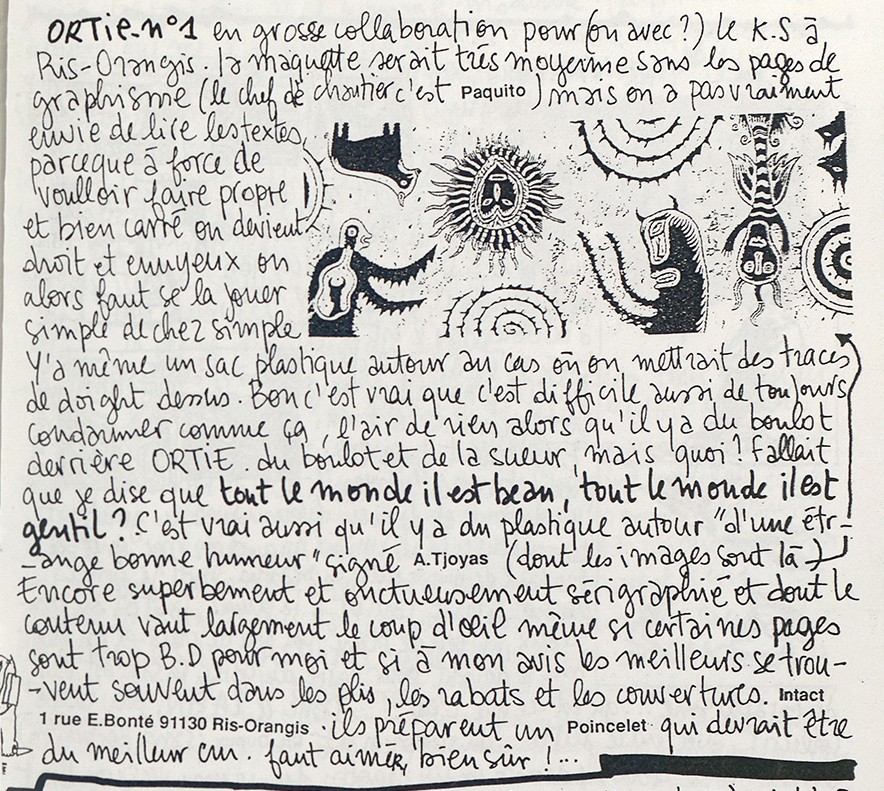 ORTiE-n°1 en grosse collaboration pour (ou avec?) le K.S à
Ris-Orangis. la maquette serait très moyenne sans les pages de
graphisme (le chef de chantier c'est Paquito) mais on a pas vraiment
envie de lire les textes,
parce que à force de
voulloir faire propre
et bien carré on devient
droit et ennuyeux ou
alors faut se la jouer
simple de chez simple
Y'a même un sac plastique autour au cas où on mettrait des traces
de doight dessus. Bon c'est vrai que c'est difficile aussi de toujours
condamner comme ça, l'air de rien alors qu'il y a du boulot
derrière ORTiE. du boulot et de la sueur, mais quoi? fallait
que je dise que tout le monde il est beau, tout le monde il est
gentil? C'est vrai aussi qu'il y a du plastique autour "d'une étr-
-ange bonne humeur" signé A.Tjoyas (dont les images sont là)
Encore superbement et onctueusement sérigraphié et dont le
contenu vaut largement le coup d'oeil même si certaines pages
sont trop B.D pour moi et si à mon avis les meilleurs se trou-
-vent souvent dans les plis, les rabats et les couvertures. Intact
1 rue E.Bonté 91130 Ris-Orangis. ils préparent un Poincelet qui devrait être
du meilleur cru. faut aimer, bien sûr!...